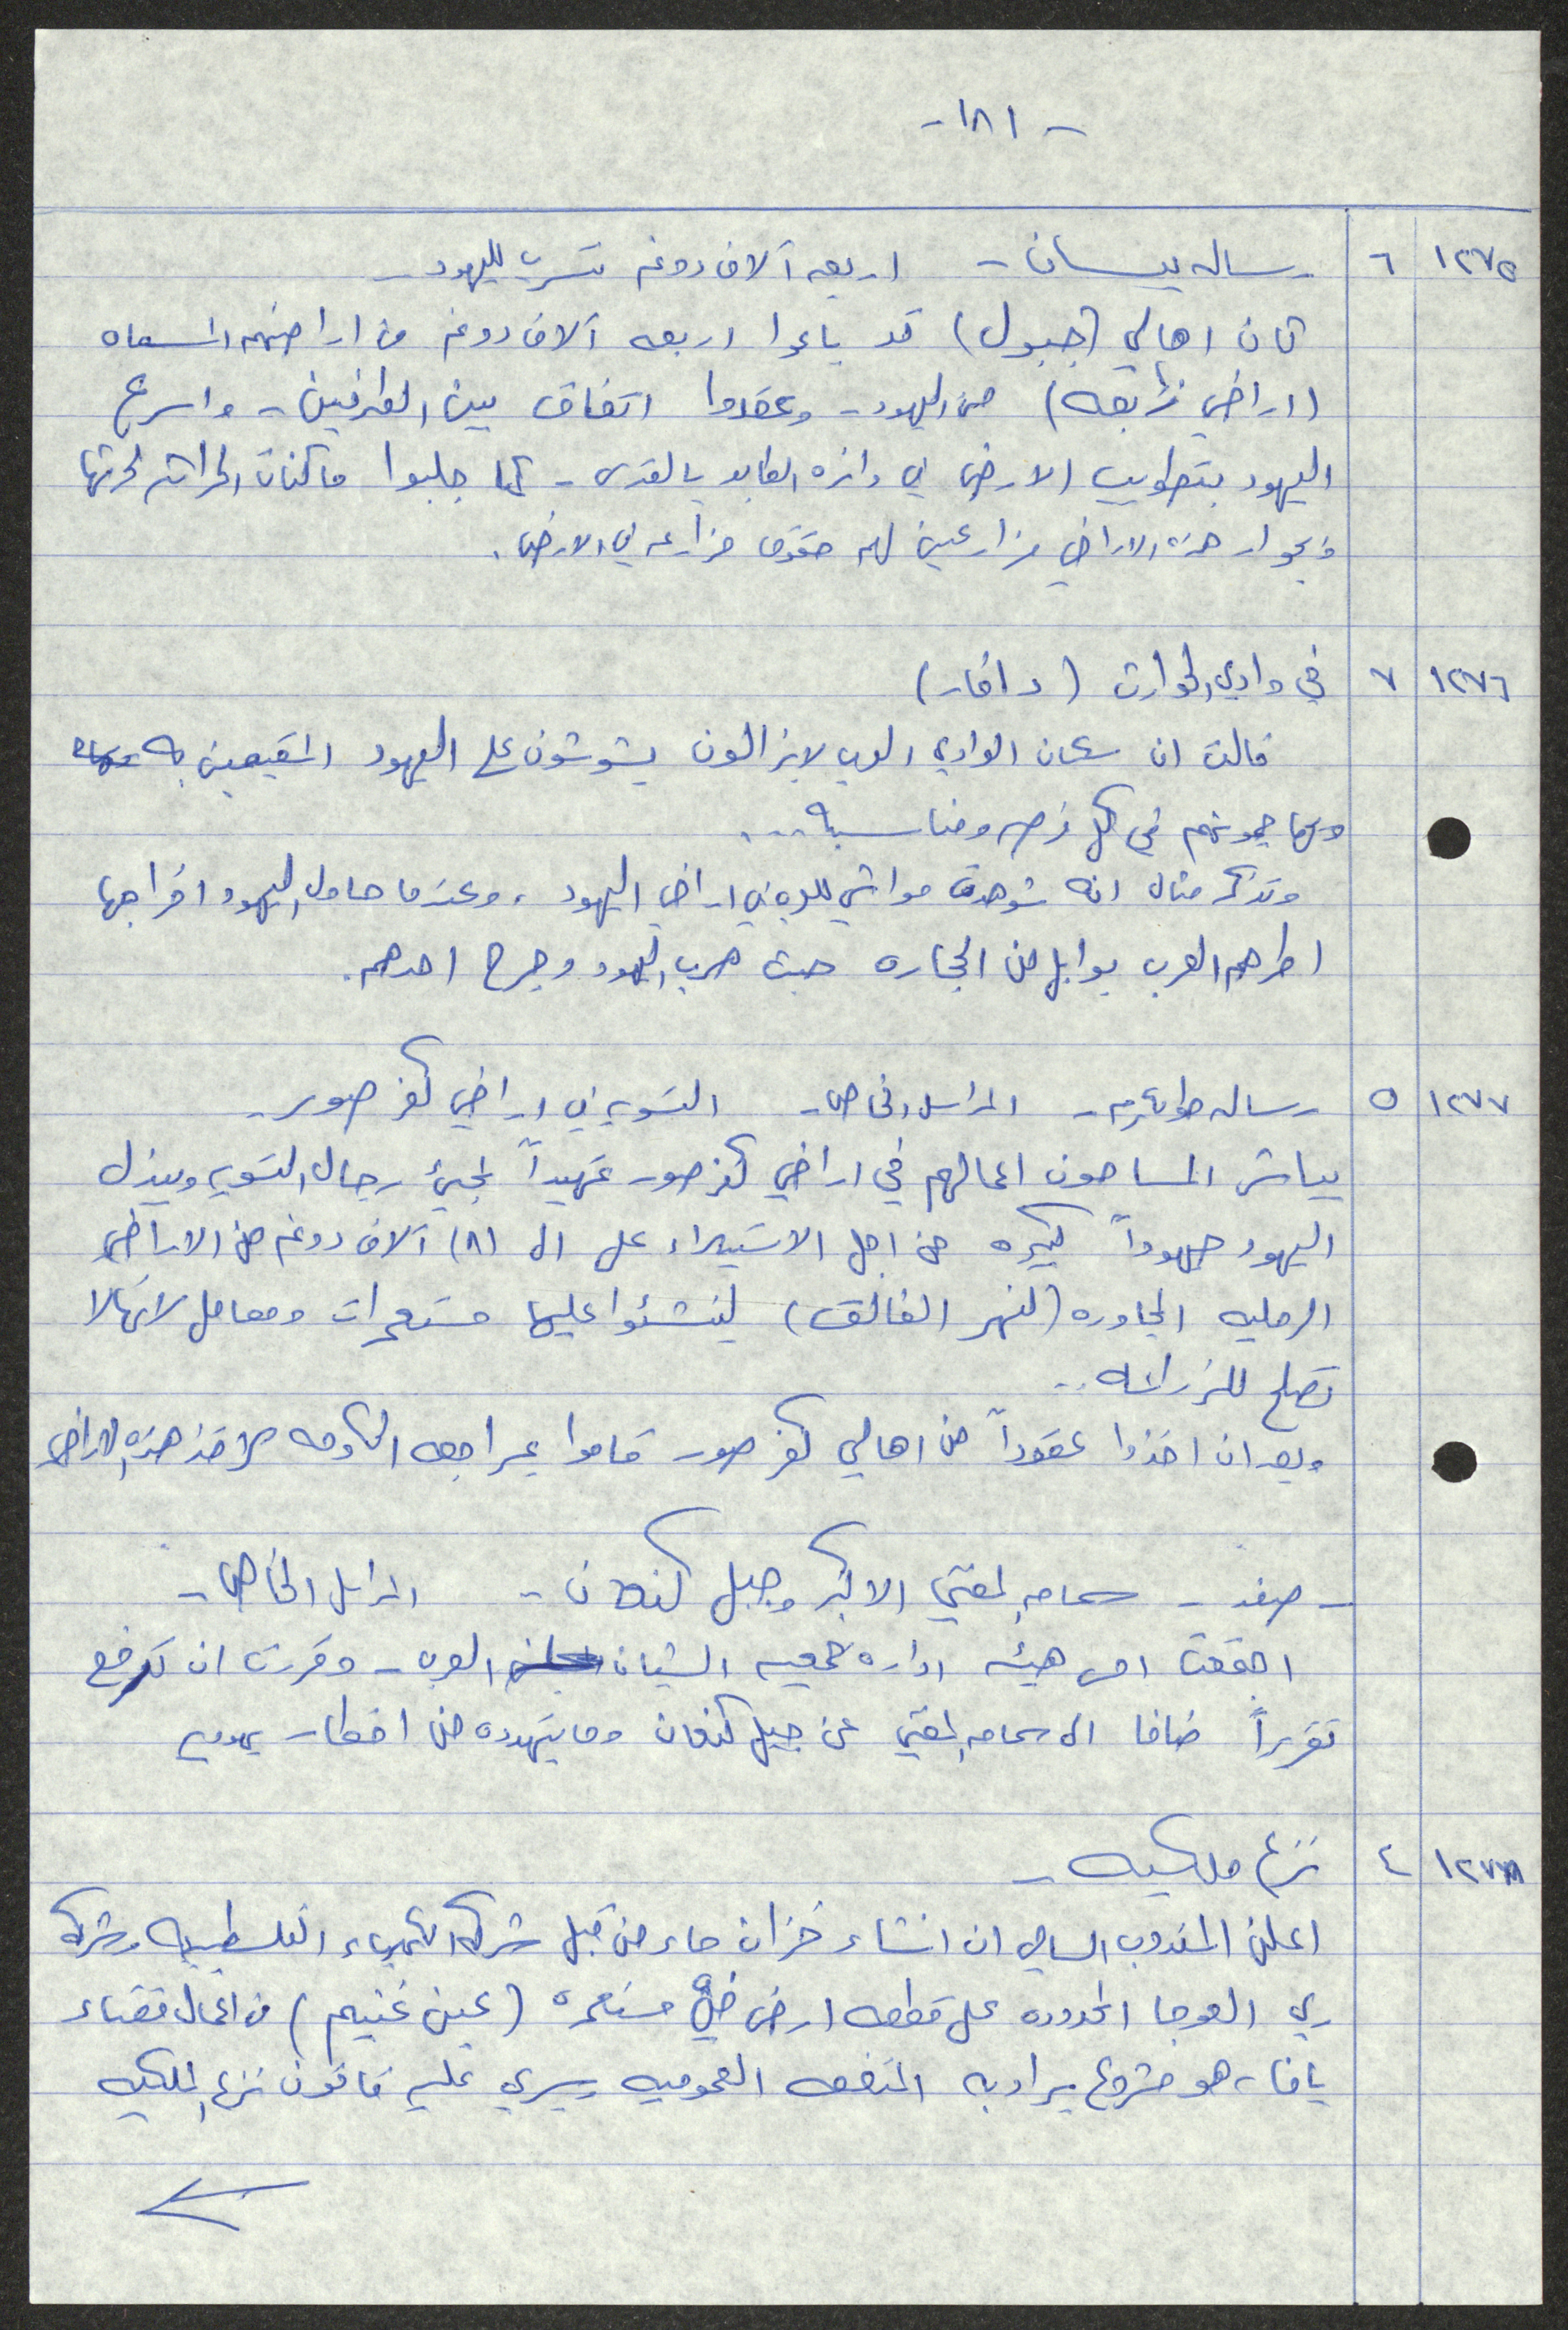 - ١٨١ -
١٢٧٥ ٦ رساله بيسان - اربعه آلاف دونم تتسرب لليهود -
كان اهالي (جبول) قد باعوا اربعه آلاف دونم من اراضيهم المسماه
(اراضي زبعه) من اليهود - وعقدوا اتفاق بين الطرفين - واسرع
اليهود بتطويب الارض في دائره الطابو بالقدس - كما جلبوا ماكنات الحراثه لحرثها
وبجوار هذه الاراضي مزارعين لهم حقوق مزارعه في الارض.
١٢٧٦ ٧ في وادي الحوارث (دافار)
قالت ان سكان الوادي العرب لا يزالون يشوشون على اليهود المقيمين به
ويهاجمونهم في كل فرصه ومناسبه ...
وتذكر مثال انه شوهدت مواشي للعرب في اراضي اليهود، وعندما حاول اليهود اخراجها
امطرهم العرب بوابل من الحجاره حيث هرب اليهود وجرح احدهم.
١٢٧٧ ٥ رساله طولكرم - المراسل الخاص - التسويه في اراضي كفر صور -
يباشر المساحون اعمالهم في اراضي كفر صور تمهيداً لمجيئ رجال التسويه ويبذل
اليهود جهوداً كبيره من اجل الاستيلاء على ال (٨) آلاف دونم من الاراضي
الرمليه المجاوره (لنهر الفالق) لينشئوا عليها مستعمرات ومعامل لانها لا
تصلح للزراعه ..
وبعد ان اخذوا عقوداً من اهالي كفر صور قاموا بمراجعه الحكومه لاخذ هذه الاراضي
- صفد - سماحه المفتي الاكبر وجبل كنعان - المراسل الخاص -
اجتمعت امس هيئه اداره جمعيه الشبان العرب - وقررت ان ترفع
تقريراً ضافا الى سماحه المفتي عن جبل كنعان وما يتهدده من اخطار يهوديه
١٢٧٨ ٤ نزع ملكيه -
اعلن المندوب السامي ان انشاء خزان ماء من قبل شركه الكهرباء الفلسطينيه وشركه
ري العوجا المحدوده على قطعه ارض في مستعمرة (عين غنيم) من اعمال قضاء
يافا، هو مشروع يراد به المنفعه العموميه ويسري عليه قانون نزع الملكيه